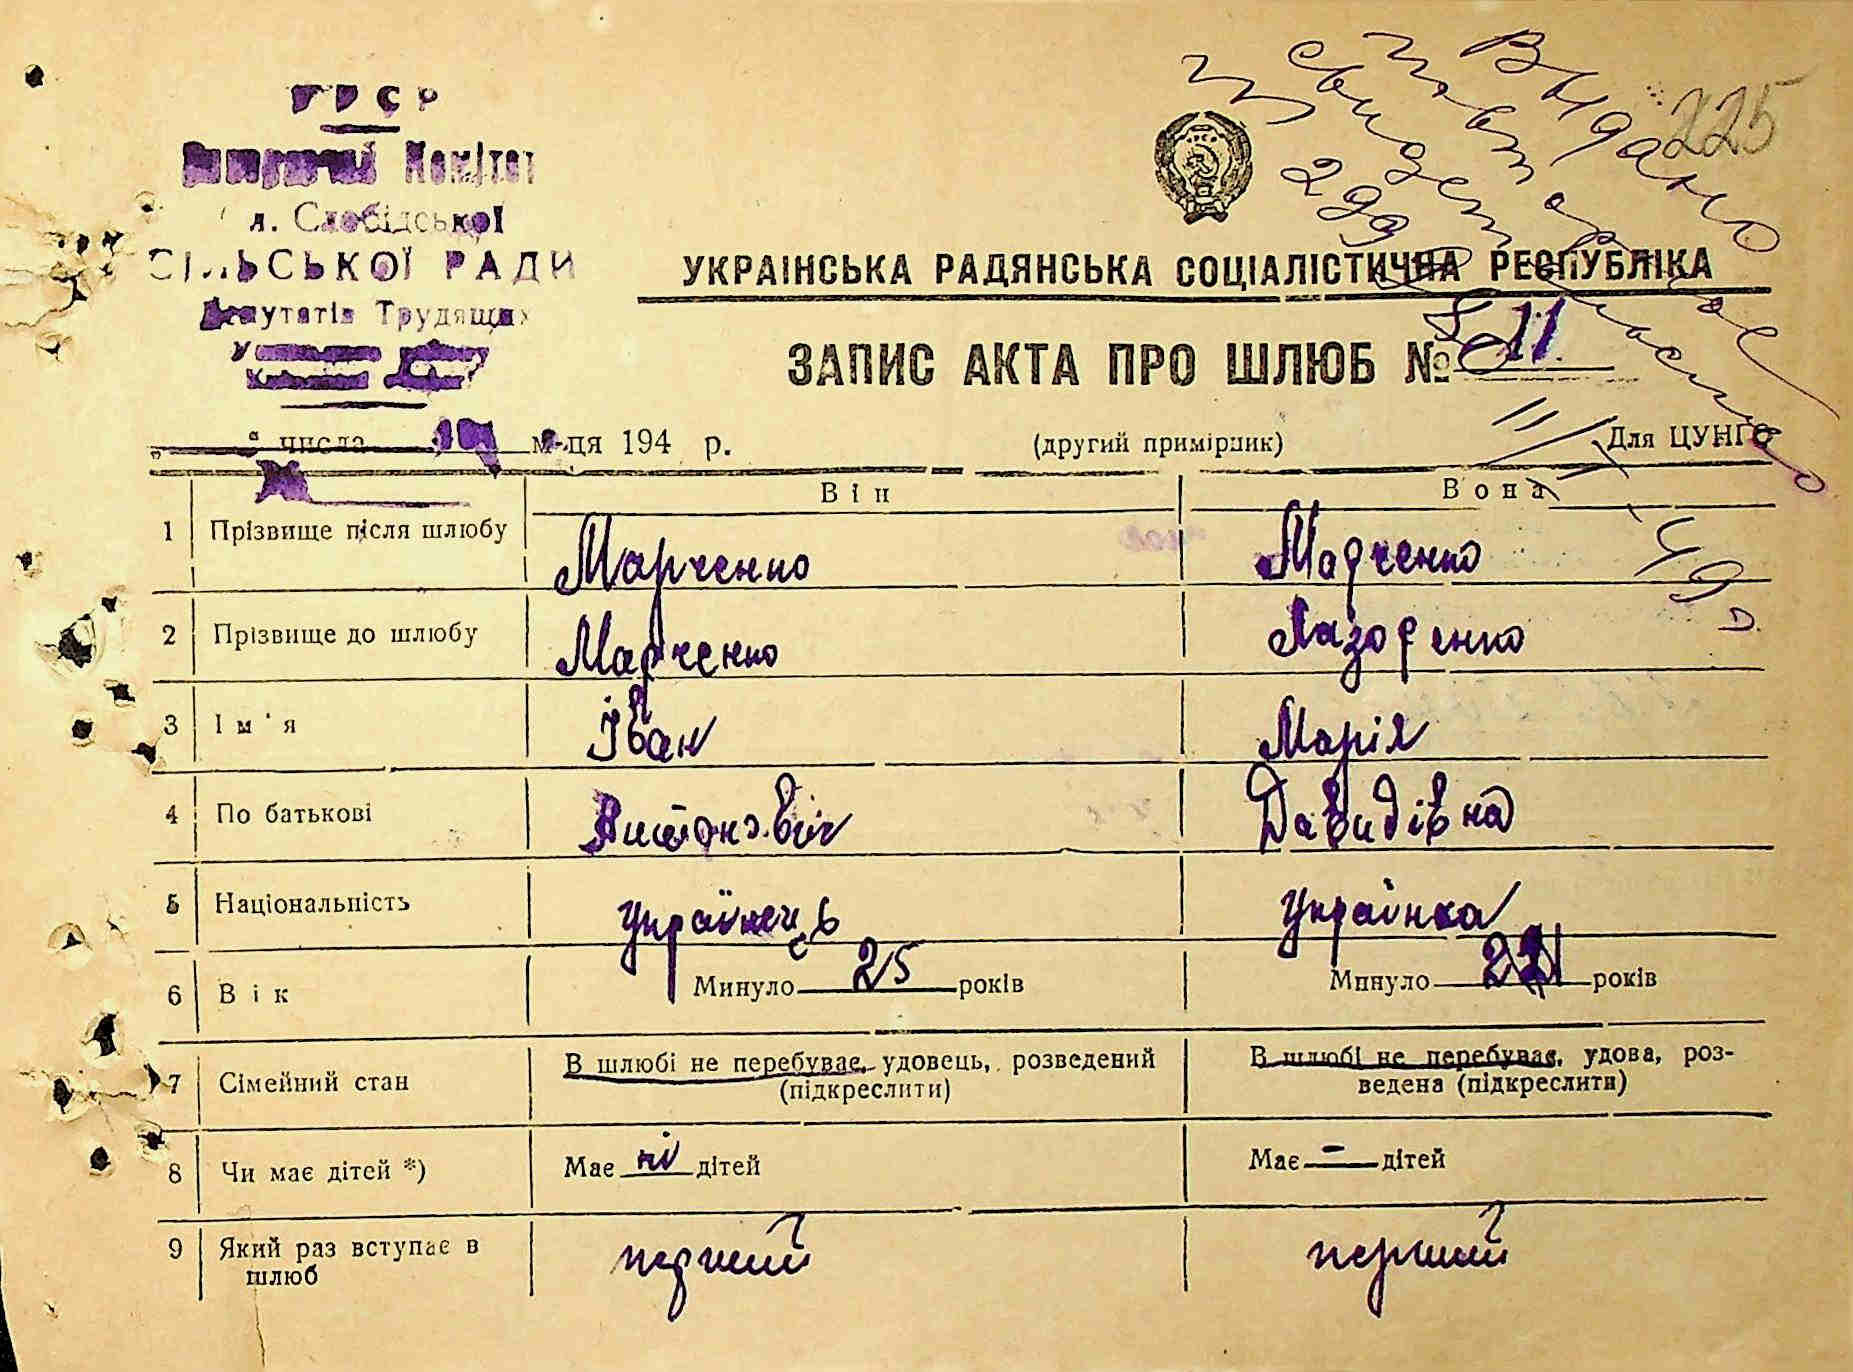 УРСР
Виконавчий Комітет
Слобідської
СІЛЬСЬКОЇ РАДИ
Депутатів Трудящих
225
Выдано
повторное
свидетельство
УКРАЇНСЬКА РАДЯНСЬКА СОЦІАЛІСТИЧНА РЕСПУБЛІКА
ЗАПИС АКТА ПРО ШЛЮБ № 11
числа м-ця 194 р.
(другий примірник)
Для ЦУНГО
Він Вона
1 Прізвище після шлюбу Марченко Марченко
2 Прізвище до шлюбу Марченко Лазоренко
3 Ім'я Іван Марія
4 По батькові Давидівна
5 Національність українець українка
6 Вік Минуло 25 років Минуло років
7 Сімейний стан В шлюбі не перебуває, удовець, розведений (підкреслити) В шлюбі не перебуває, удова, роз-
ведена (підкреслити)
8 Чи має дітей *) Має ні дітей Має - дітей
9 Який раз вступає в шлюб перший перший